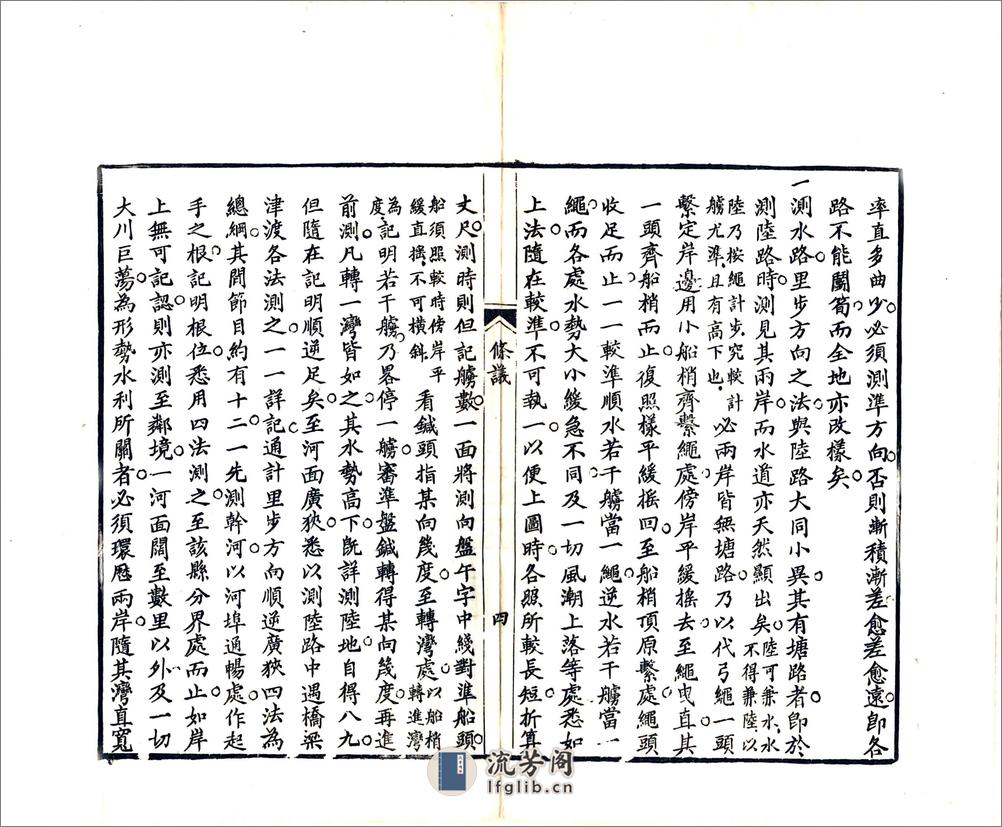 率直多曲少必須測準方向否則漸積漸差愈差愈遠即各
路不能鬭筍而全地亦改樣矣
一測水路里步方向之法與陸路大同小異其有塘路者即於
測陸路時測見其兩岸而水道亦天然顯出矣陸可兼水水不得兼陸以
陸乃按繩計步究較計艣尤準且有高下也必兩岸皆無塘路乃以代弓繩一頭
繫定岸邊用小船梢齊繫繩處傍岸平緩搖去至繩曳直其
一頭齊船梢而止復照樣平緩搖回至船梢頂原繫處繩頭
收足而止一一較準順水若干艣當一繩逆水若干艣當一
繩而各處水勢大小緩急不同及一切風潮上落等處悉如
上法隨在較準不可執一以便上圖時各照所較長短折算
條議
四
丈尺測時則但記艣數一面將測向盤午字中綫對準船頭
船須照較時傍岸平緩直搖不可橫斜看鍼頭指某向幾度至轉灣處以船梢轉進灣
為度記明若干艣乃畧停一艣審準盤鍼轉得某向幾度再進
前測凡轉一灣皆如之其水勢高下旣詳測陸地自得八九
但隨在記明順逆足矣至河面廣狹悉以測陸路中遇橋梁
津渡各法測之一一詳記通計里步方向順逆廣狹四法為
總綱其間節目約有十二一先測幹河以河埠通暢處作起
手之根記明根位悉用四法測之至該縣分界處而止如岸
上無可記認則亦測至鄰境一河面闊至數里以外及一切
大川巨蕩為形勢水利所關者必須環歷兩岸隨其灣直寬
流芳阁
lfglib.cn